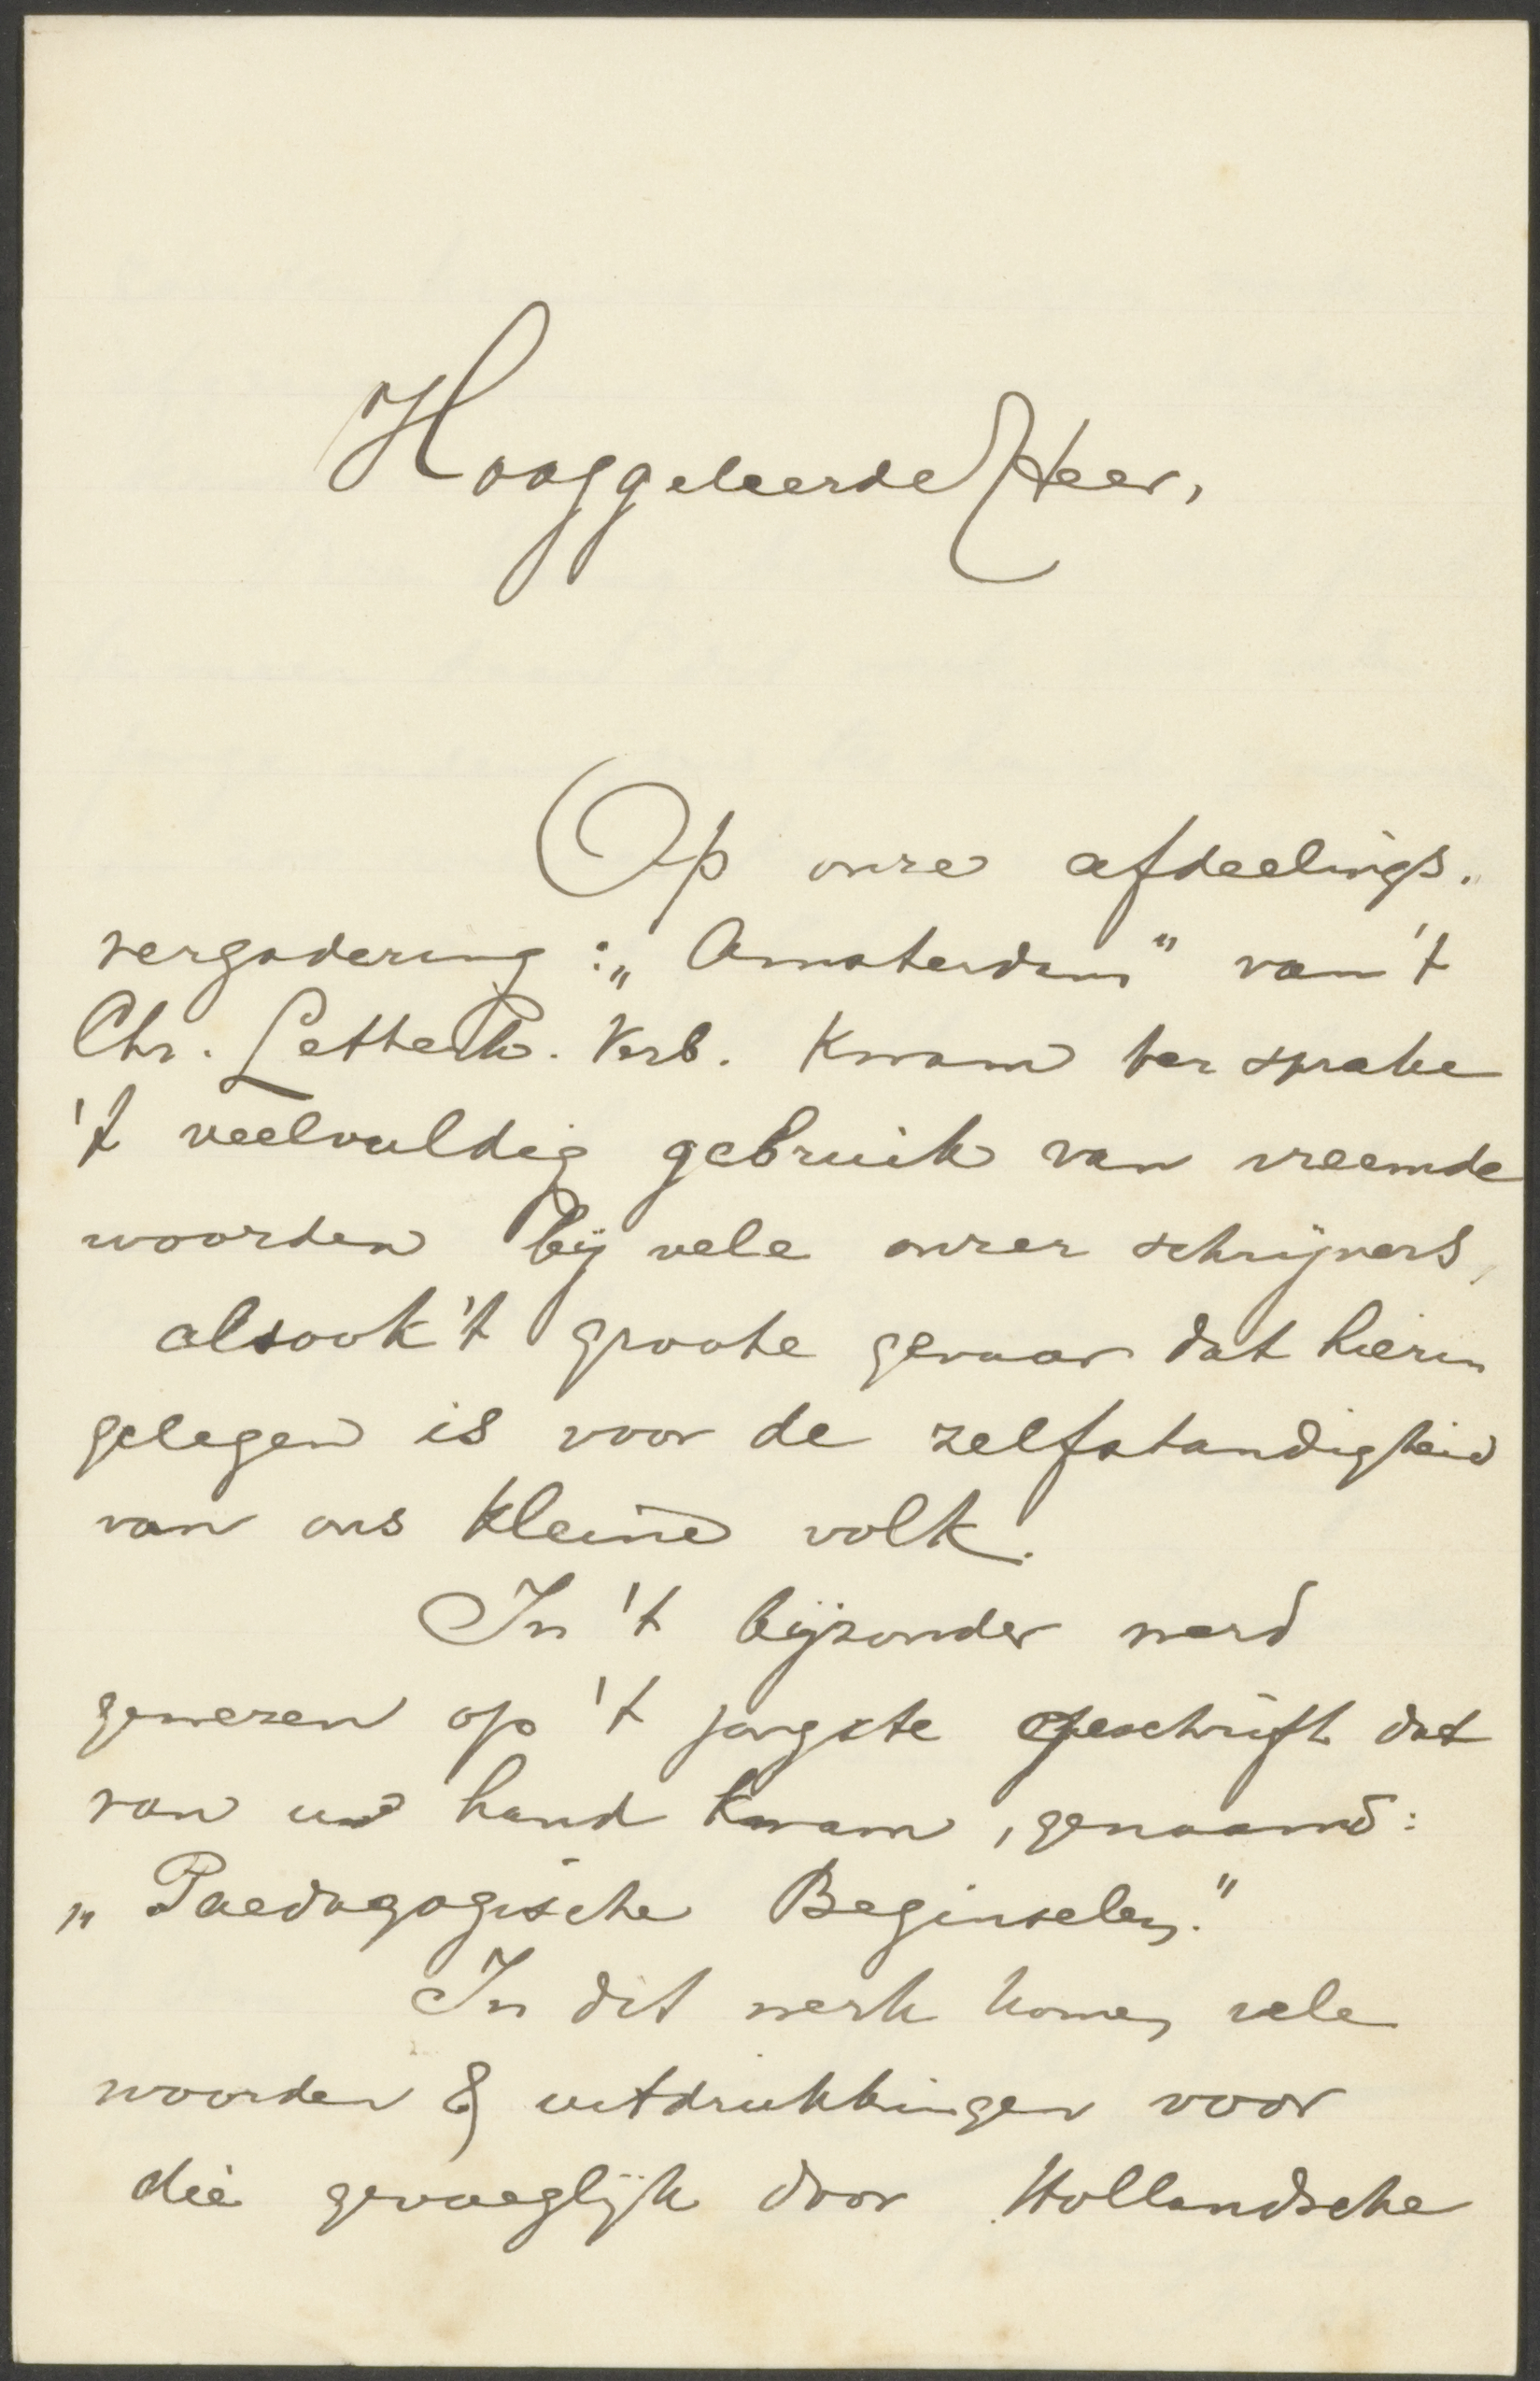 Hooggeleerde Heer,
Op onze afdeelings-
vergadering: „Amsterdam" van 't
Chr. Letterk. Verb. kwam ter sprake
't veelvuldig gebruik van vreemde
woorden bij vele onzer schrijvers,
alsook 't groote gevaar dat hierin
gelegen is voor de zelfstandigheid
van ons kleine volk.
In 't bijzonder werd
gewezen op 't jongste geschrift dat
van uw hand kwam, genaamd:
„Paedagogische Beginselen."
In dit werk komen vele
woorden & uitdrukkingen voor
die gevoeglijk door Hollandsche